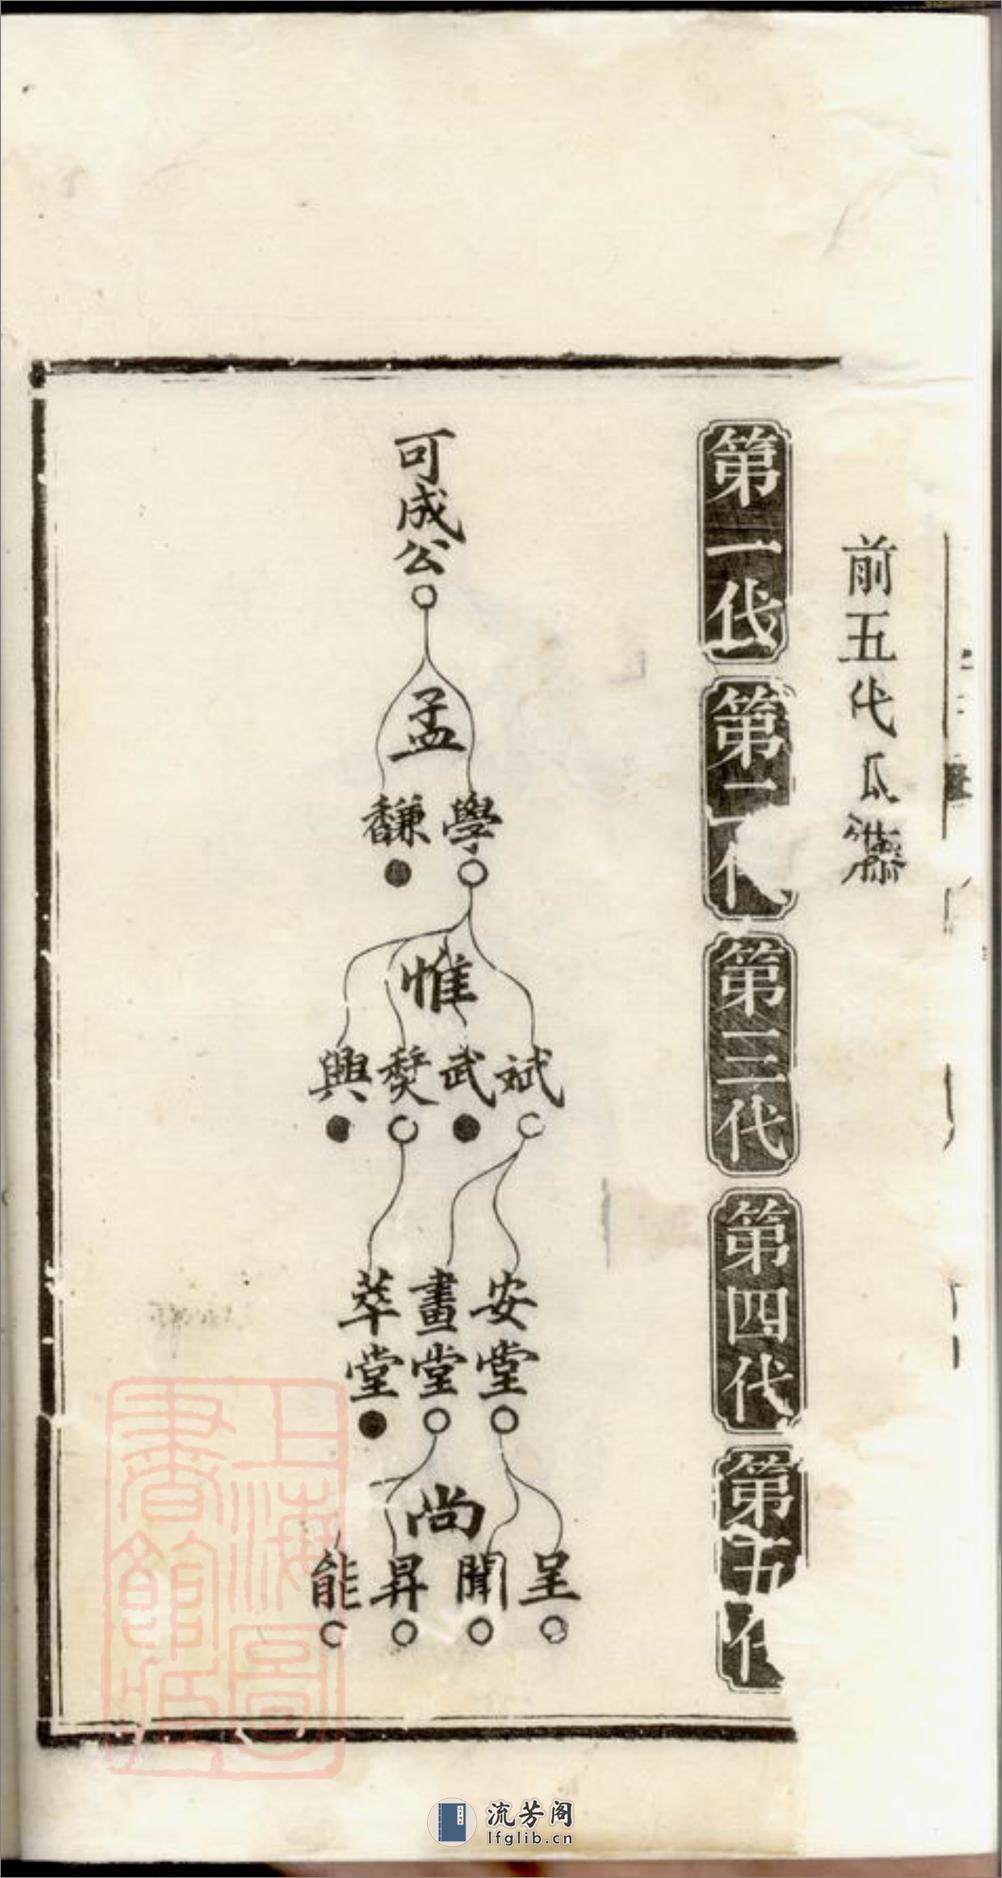 前五代瓜
第一代
第二代
第三代
第四代
第五代
可成公
孟
學
馦
惟
斌
武
熒
興
安堂
畫堂
萃堂
尚
呈
聞
昇
能
上海圖
書館藏
流芳阁
lfglib.cn